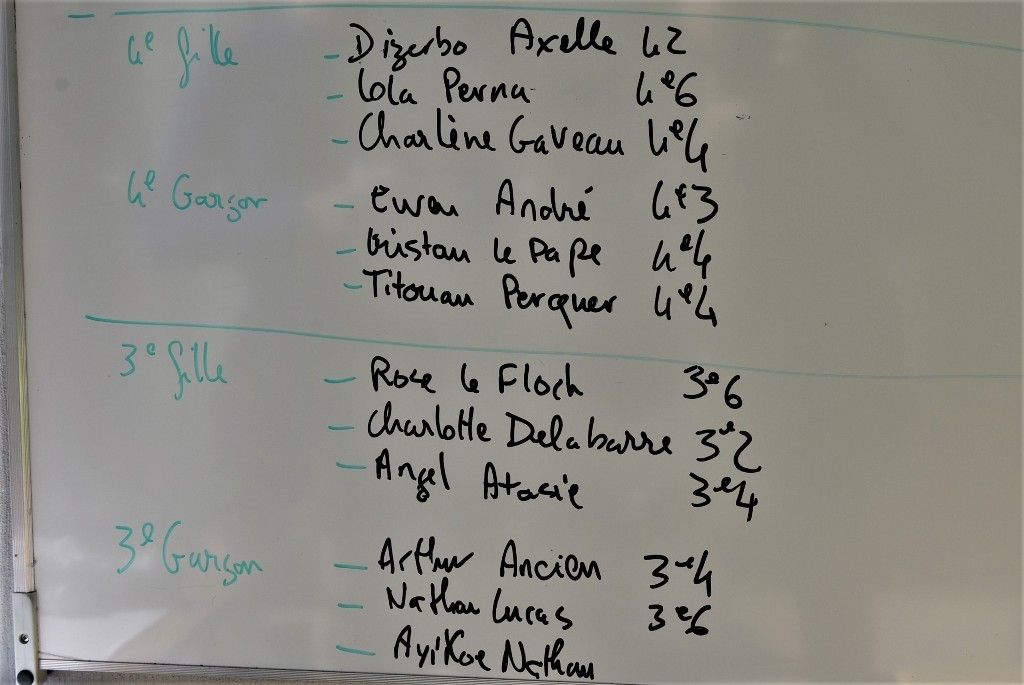 4e fille - Dizerbo Axelle 42
- Lola Perna 4e6
- Charlène Gaveau 4e4
4e Garçon - Ewan André 4e3
- Tristan le Pape 4e4
- Titouan Percquer 4e4
3e fille - Rose le Floch 3e6
- Charlotte Delabarre 3e2
- Angel Atasie 3e4
3e Garçon - Arthur Ancien 3e4
- Nathan Lucas 3e6
- Ayikoe Nathan